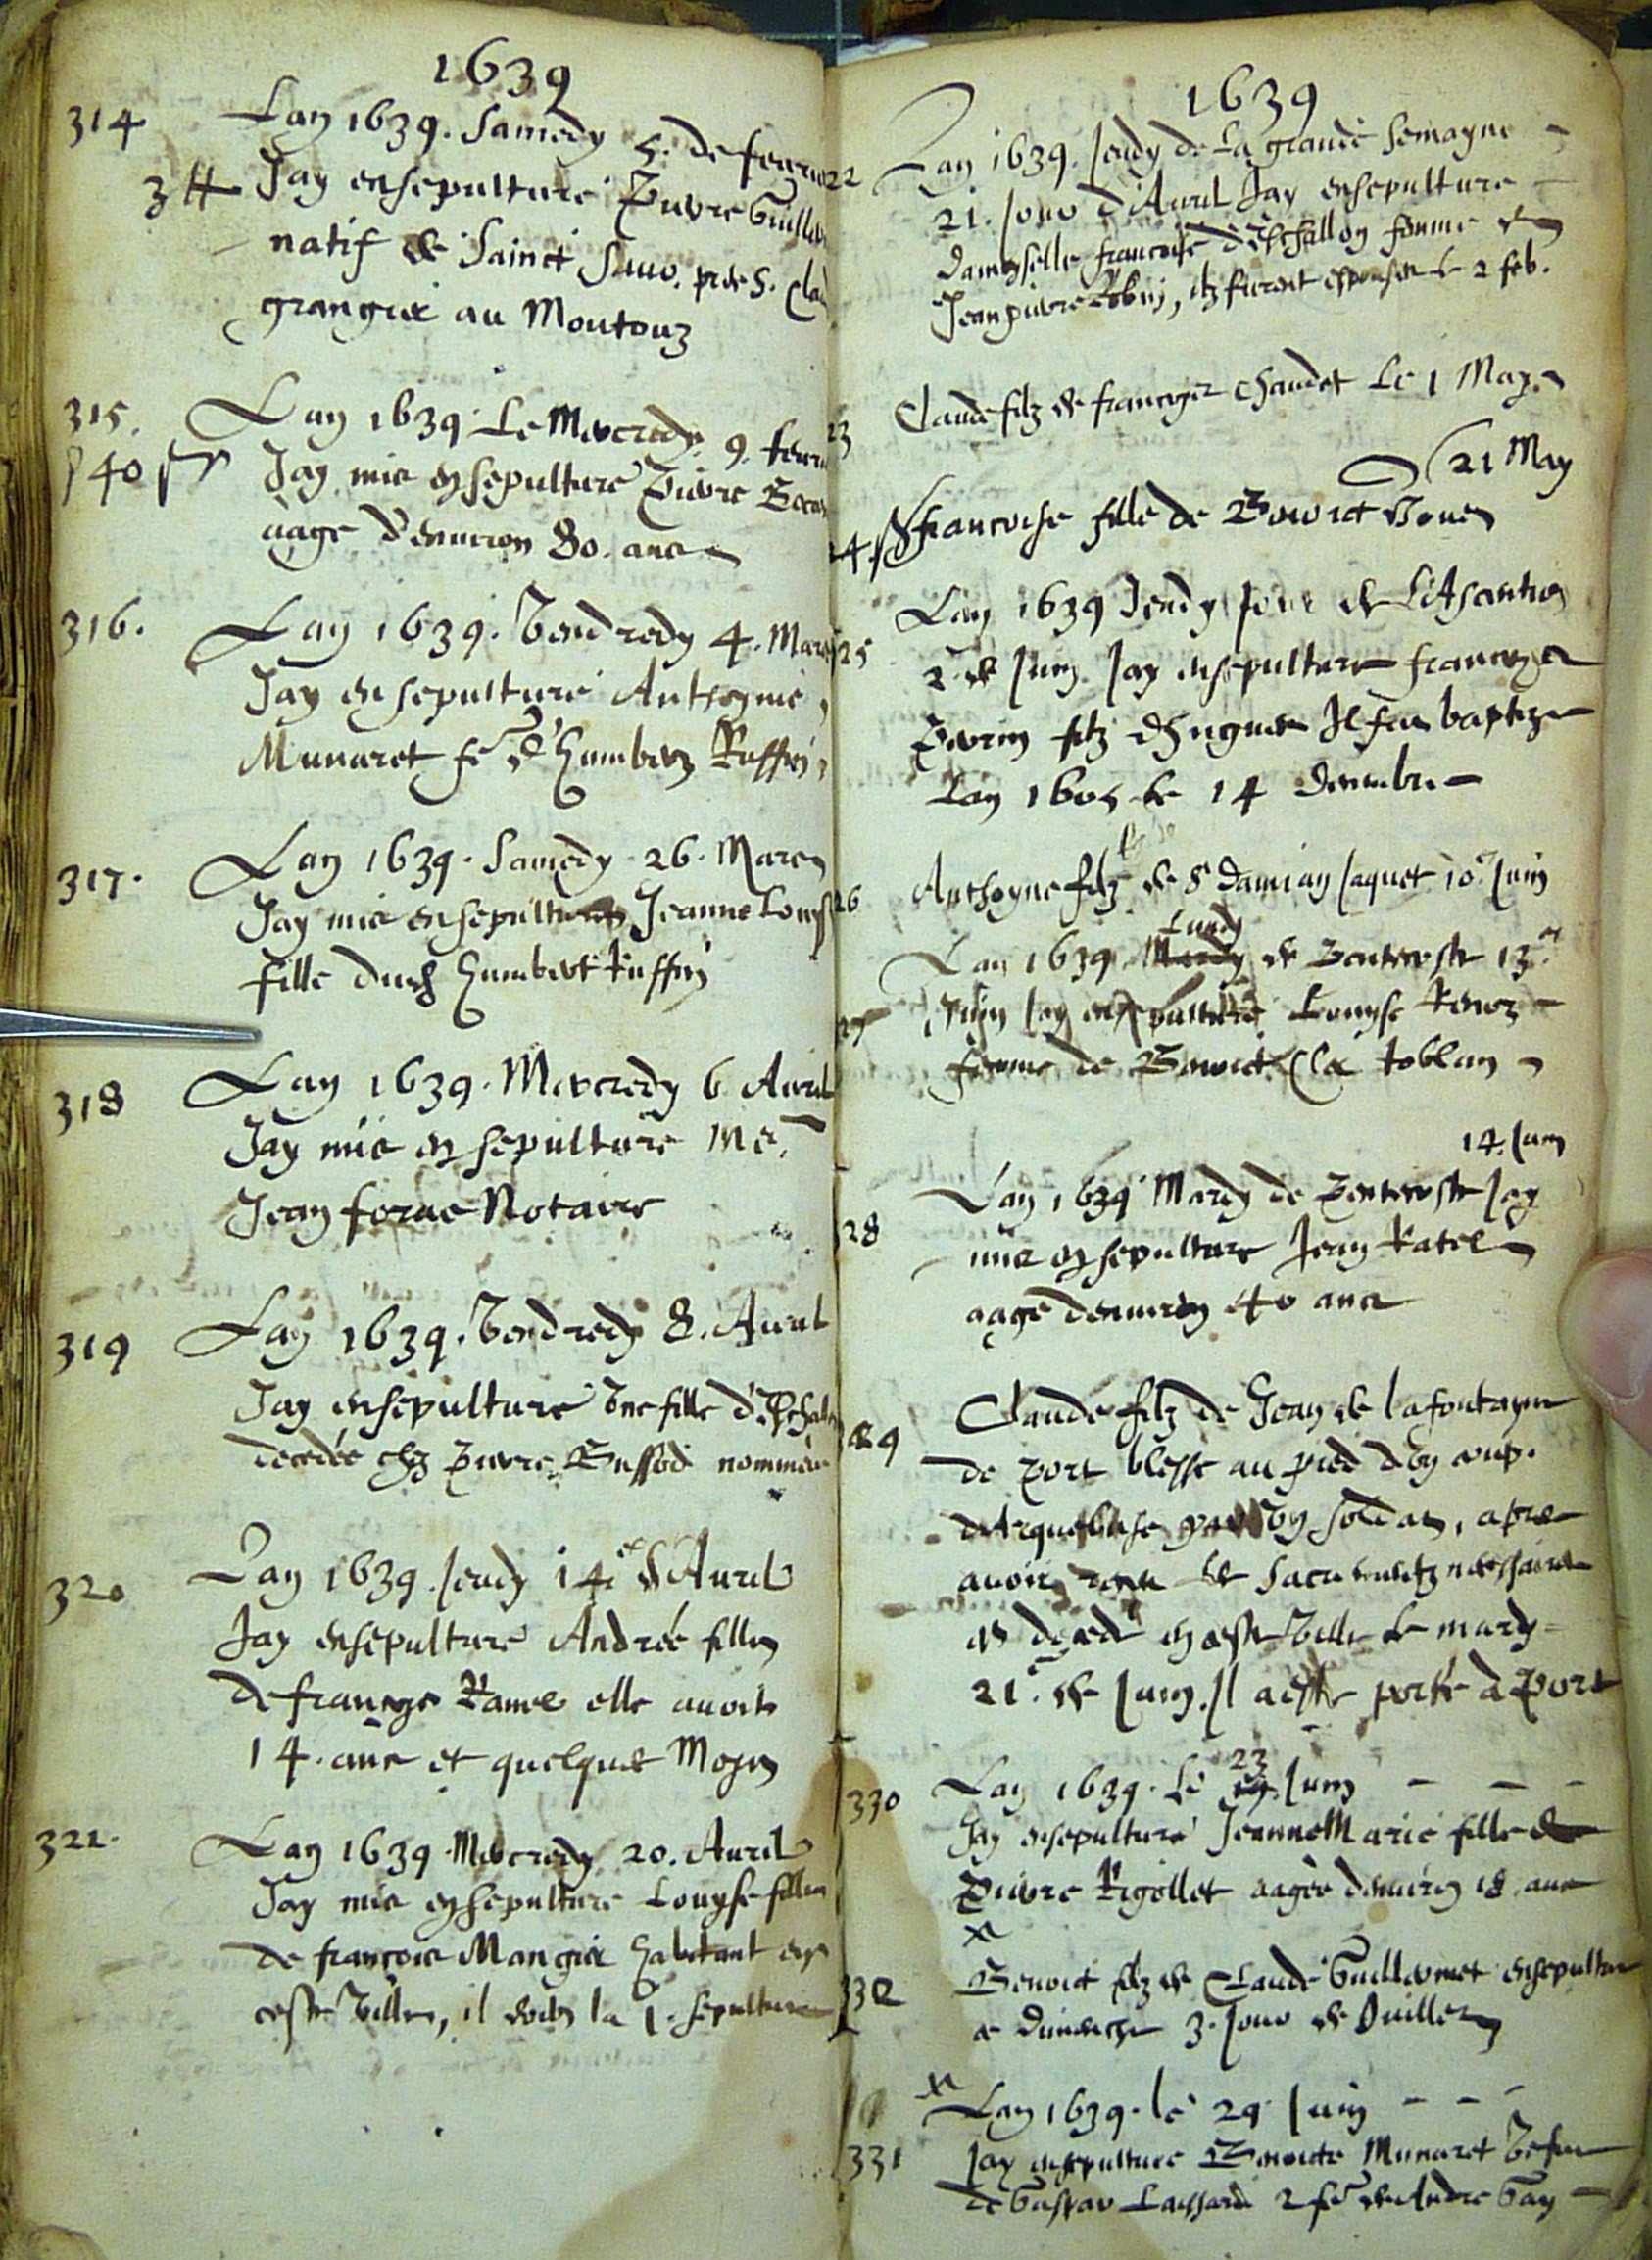 1639
314 Lan 1639. Samedy 5. de feuri
3 ## Jay ensepulturé Pierre Guille
natif de Sainct Sauv. pres S. Clau
grangier au Montouz
315. Lan 1639 Le Mercredy 9. feur
40 Jay mis en sepulture Pierre
aagé d'enuiron 80. ans
316. Lan 1639. Vendredy 4. Mars
Jay ensepulturé Anthoynie
Munaret fe de Humbert Ruffin
317. Lan 1639. Samedy 26. Mars
Jay mis ensepulture Jeanne Louyse
fille dud Humbert Ruffin
318 Lan 1639. Mercredy 6 Auril
Jay mis en sepulture Me.
Jean foras Notaire
319 Lan 1639. Vendredy 8. Auril
Jay ensepulturé Vne fille d'Eschal
decedée chez Pierre Buffod nommée
320 Lan 1639. Jeudy 14e d'Auril
Jay ensepulturé Andrée fille
de françoys Ramel elle auoit
14. ans et quelques Moys
321. Lan 1639. Mercredy 20. Auril
Jay mis en sepulture Louyse fille
de françois Mangier habitant en
ceste Ville, il doibt la sepulture
1639
22 Lan 1639. Jeudy de La grande Semayne
21. Jour d'Auril Jay ensepulturé
Damoyselle francoise d'Eschallon femme de
Jean pierre Robin, ilz furent espousés le 2 feb.
23 Claude filz de françoys Chaudet Le 1 May.
21 May
24. francoise fille de Benoict
25 Lan 1639 Jeudy Jour de L'Ascention
2. de Juin Jay ensepulture françoys
Perrin filz d'Hugues Il fut baptizé
Lan 1605 le 14 Decembre
26 Anthoyne filz de Sr Damian Jaquet 10e Juin
Lundy
27 Lan 1639 Mardy de Pentecoste 13.e
Juin Jay ensepulturé Louyse
femme de Benoict Cla toblan
14. Juin
28 Lan 1639 Mardy de Pentecoste Jay
mis en sepulture Jean Ratel
aagé denuiron 40 ans
29 Claude filz de Jean de lafontayne
de Port blessé au pied d'un coup
d'Arquebuse par un soldat, apres
auoir receu les Sacrementz necessaires
est decedé en ceste Ville le mardy
21e. de Juin. Il a esté porté à Port
23
330 Lan 1639. Le Juin
Jay ensepulturé Jeanne Marie fille de
Pierre Rigollet aagée denuiron 18 ans
332 Benoict filz de Claude Guillermet ensepulturé
ce dimenche 3. Jour de Juillet
Lan 1639. le 29 Juin
331 Jay ensepulturé Benoicte Munaret Vefue
de Gaspar Lachard 2 fe de Andre Gay